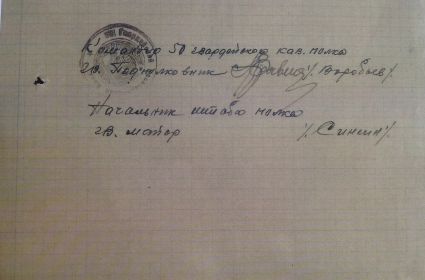 Командир 50 гвардейского кав. полка
гв. Подполковник /. Воробьев/.
Начальник штаба полка
гв. майор /. Синин/.